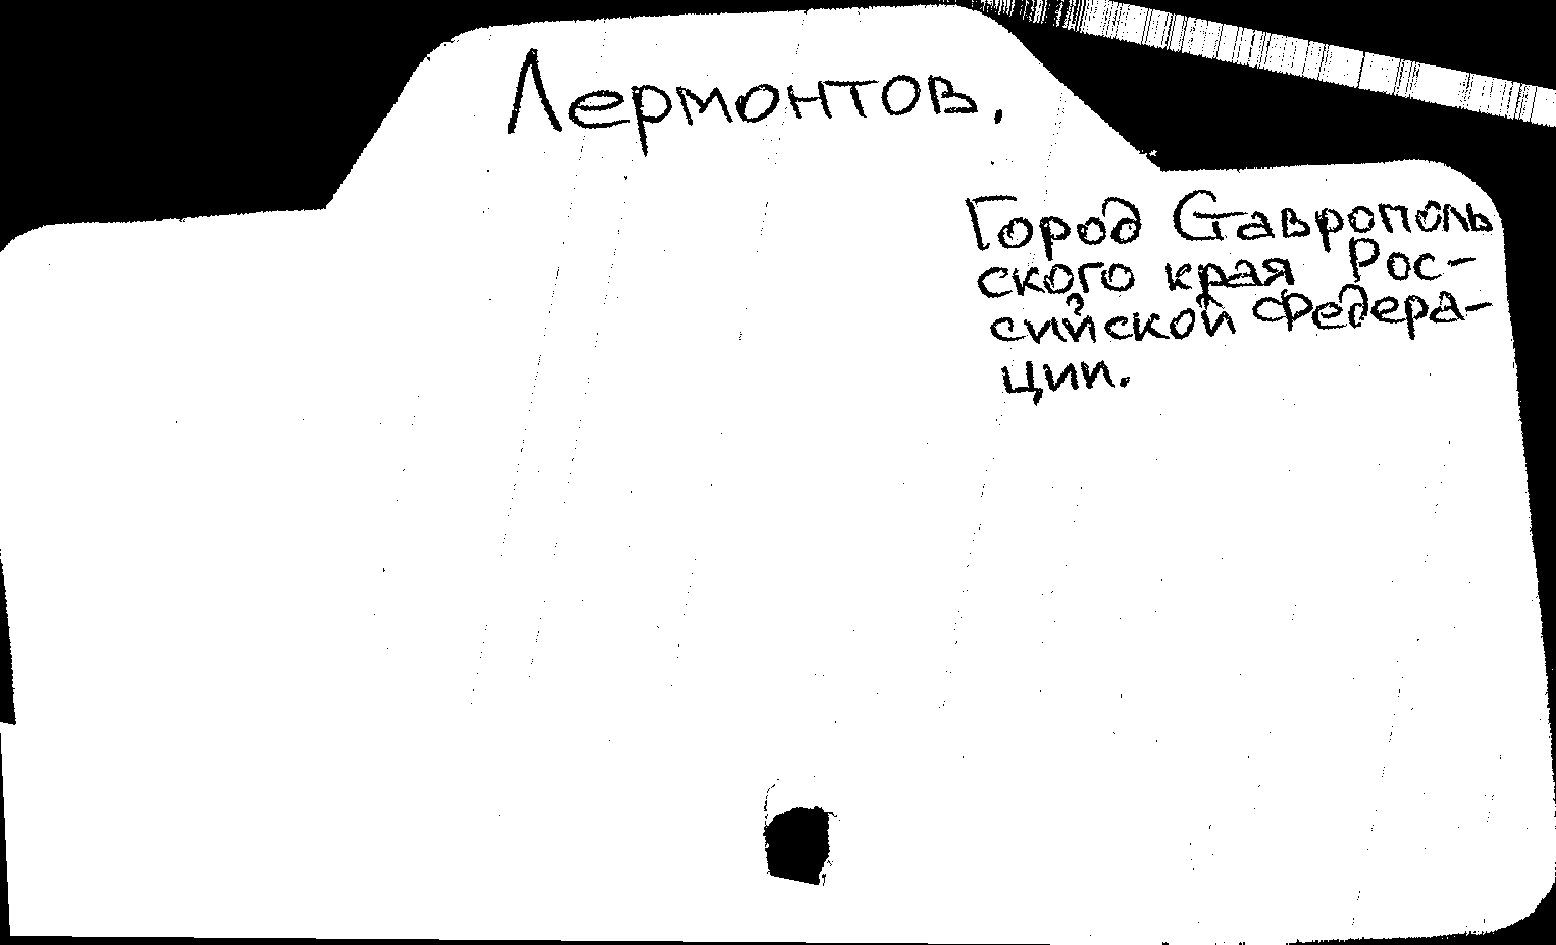 Лермонтов.
Город Ставрополь
ского края Рос-
сийской Федера-
ции.